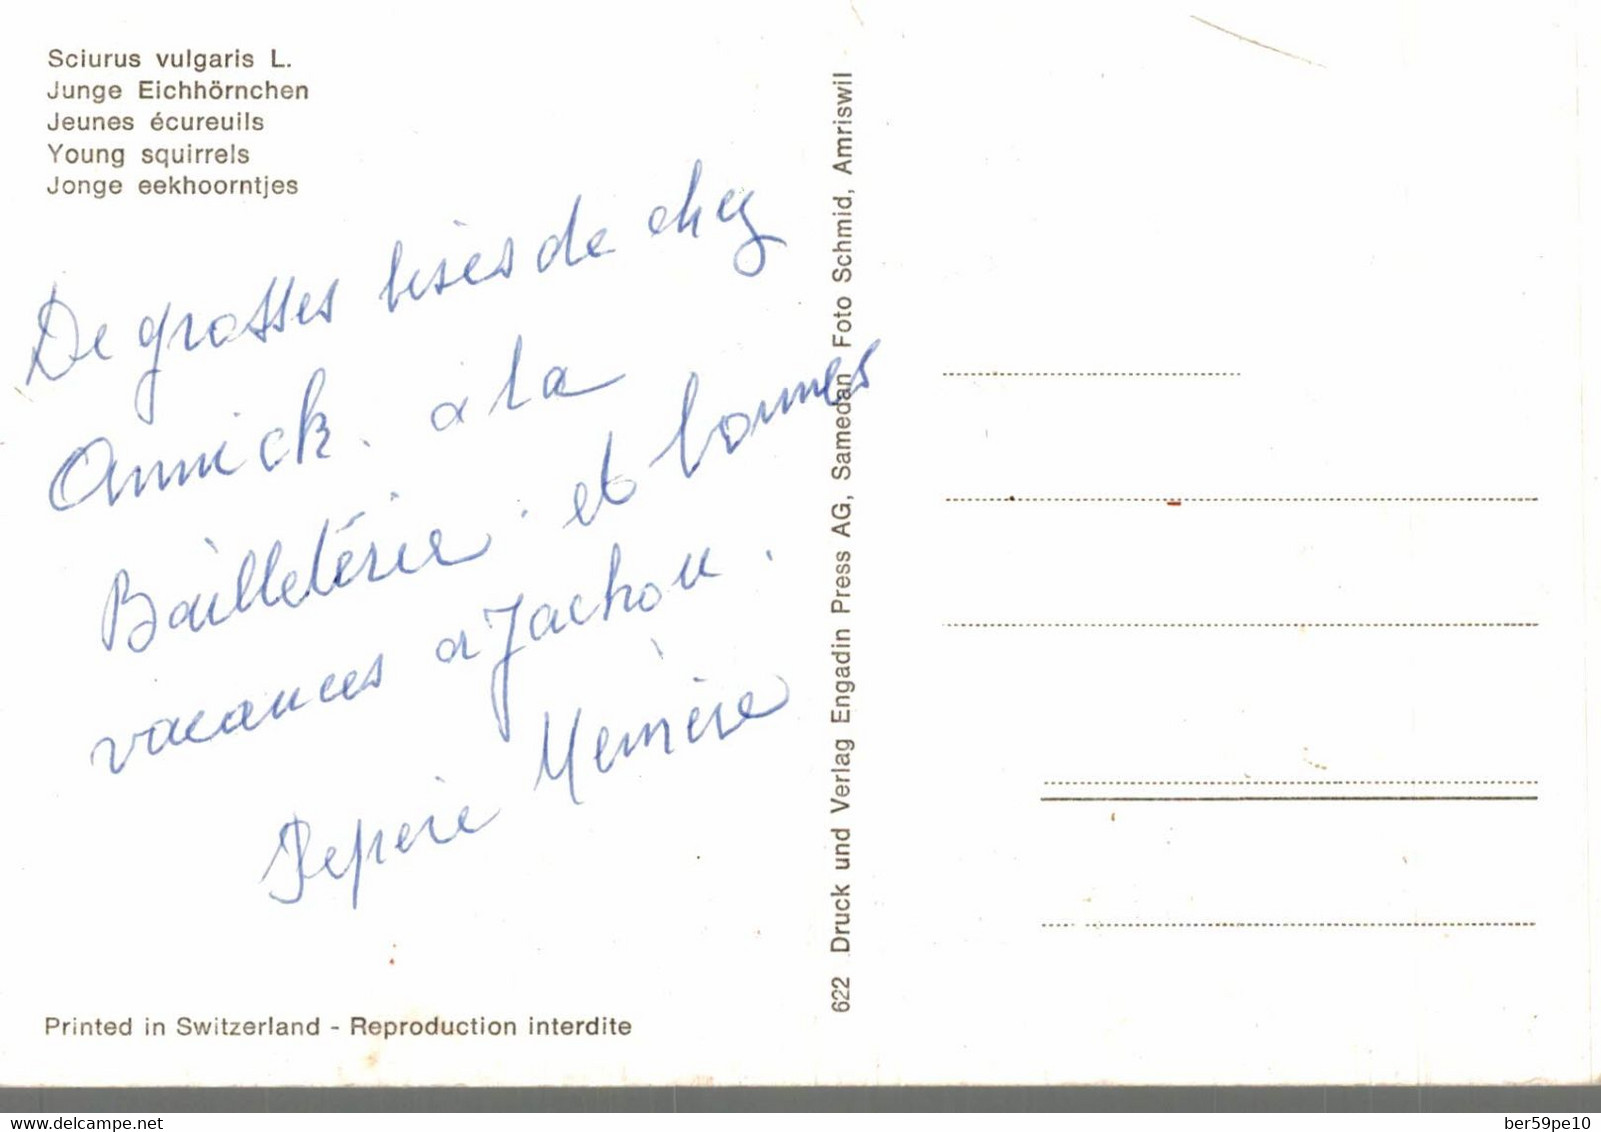 Sciurus vulgaris L.
Junge Eichhörnchen
Jeunes écureuils
Young squirrels
Jonge eekhoorntjes
De grosses bises de chez
Annick. a la
Bailletérie. et bonnes
vacances a Jachou.
Pepère Memère
Printed in Switzerland - Reproduction interdite
622 Druck und Verlag Engadin Press AG, Samedan Foto Schmid, Amriswil
delcampe.net
ber59pe10